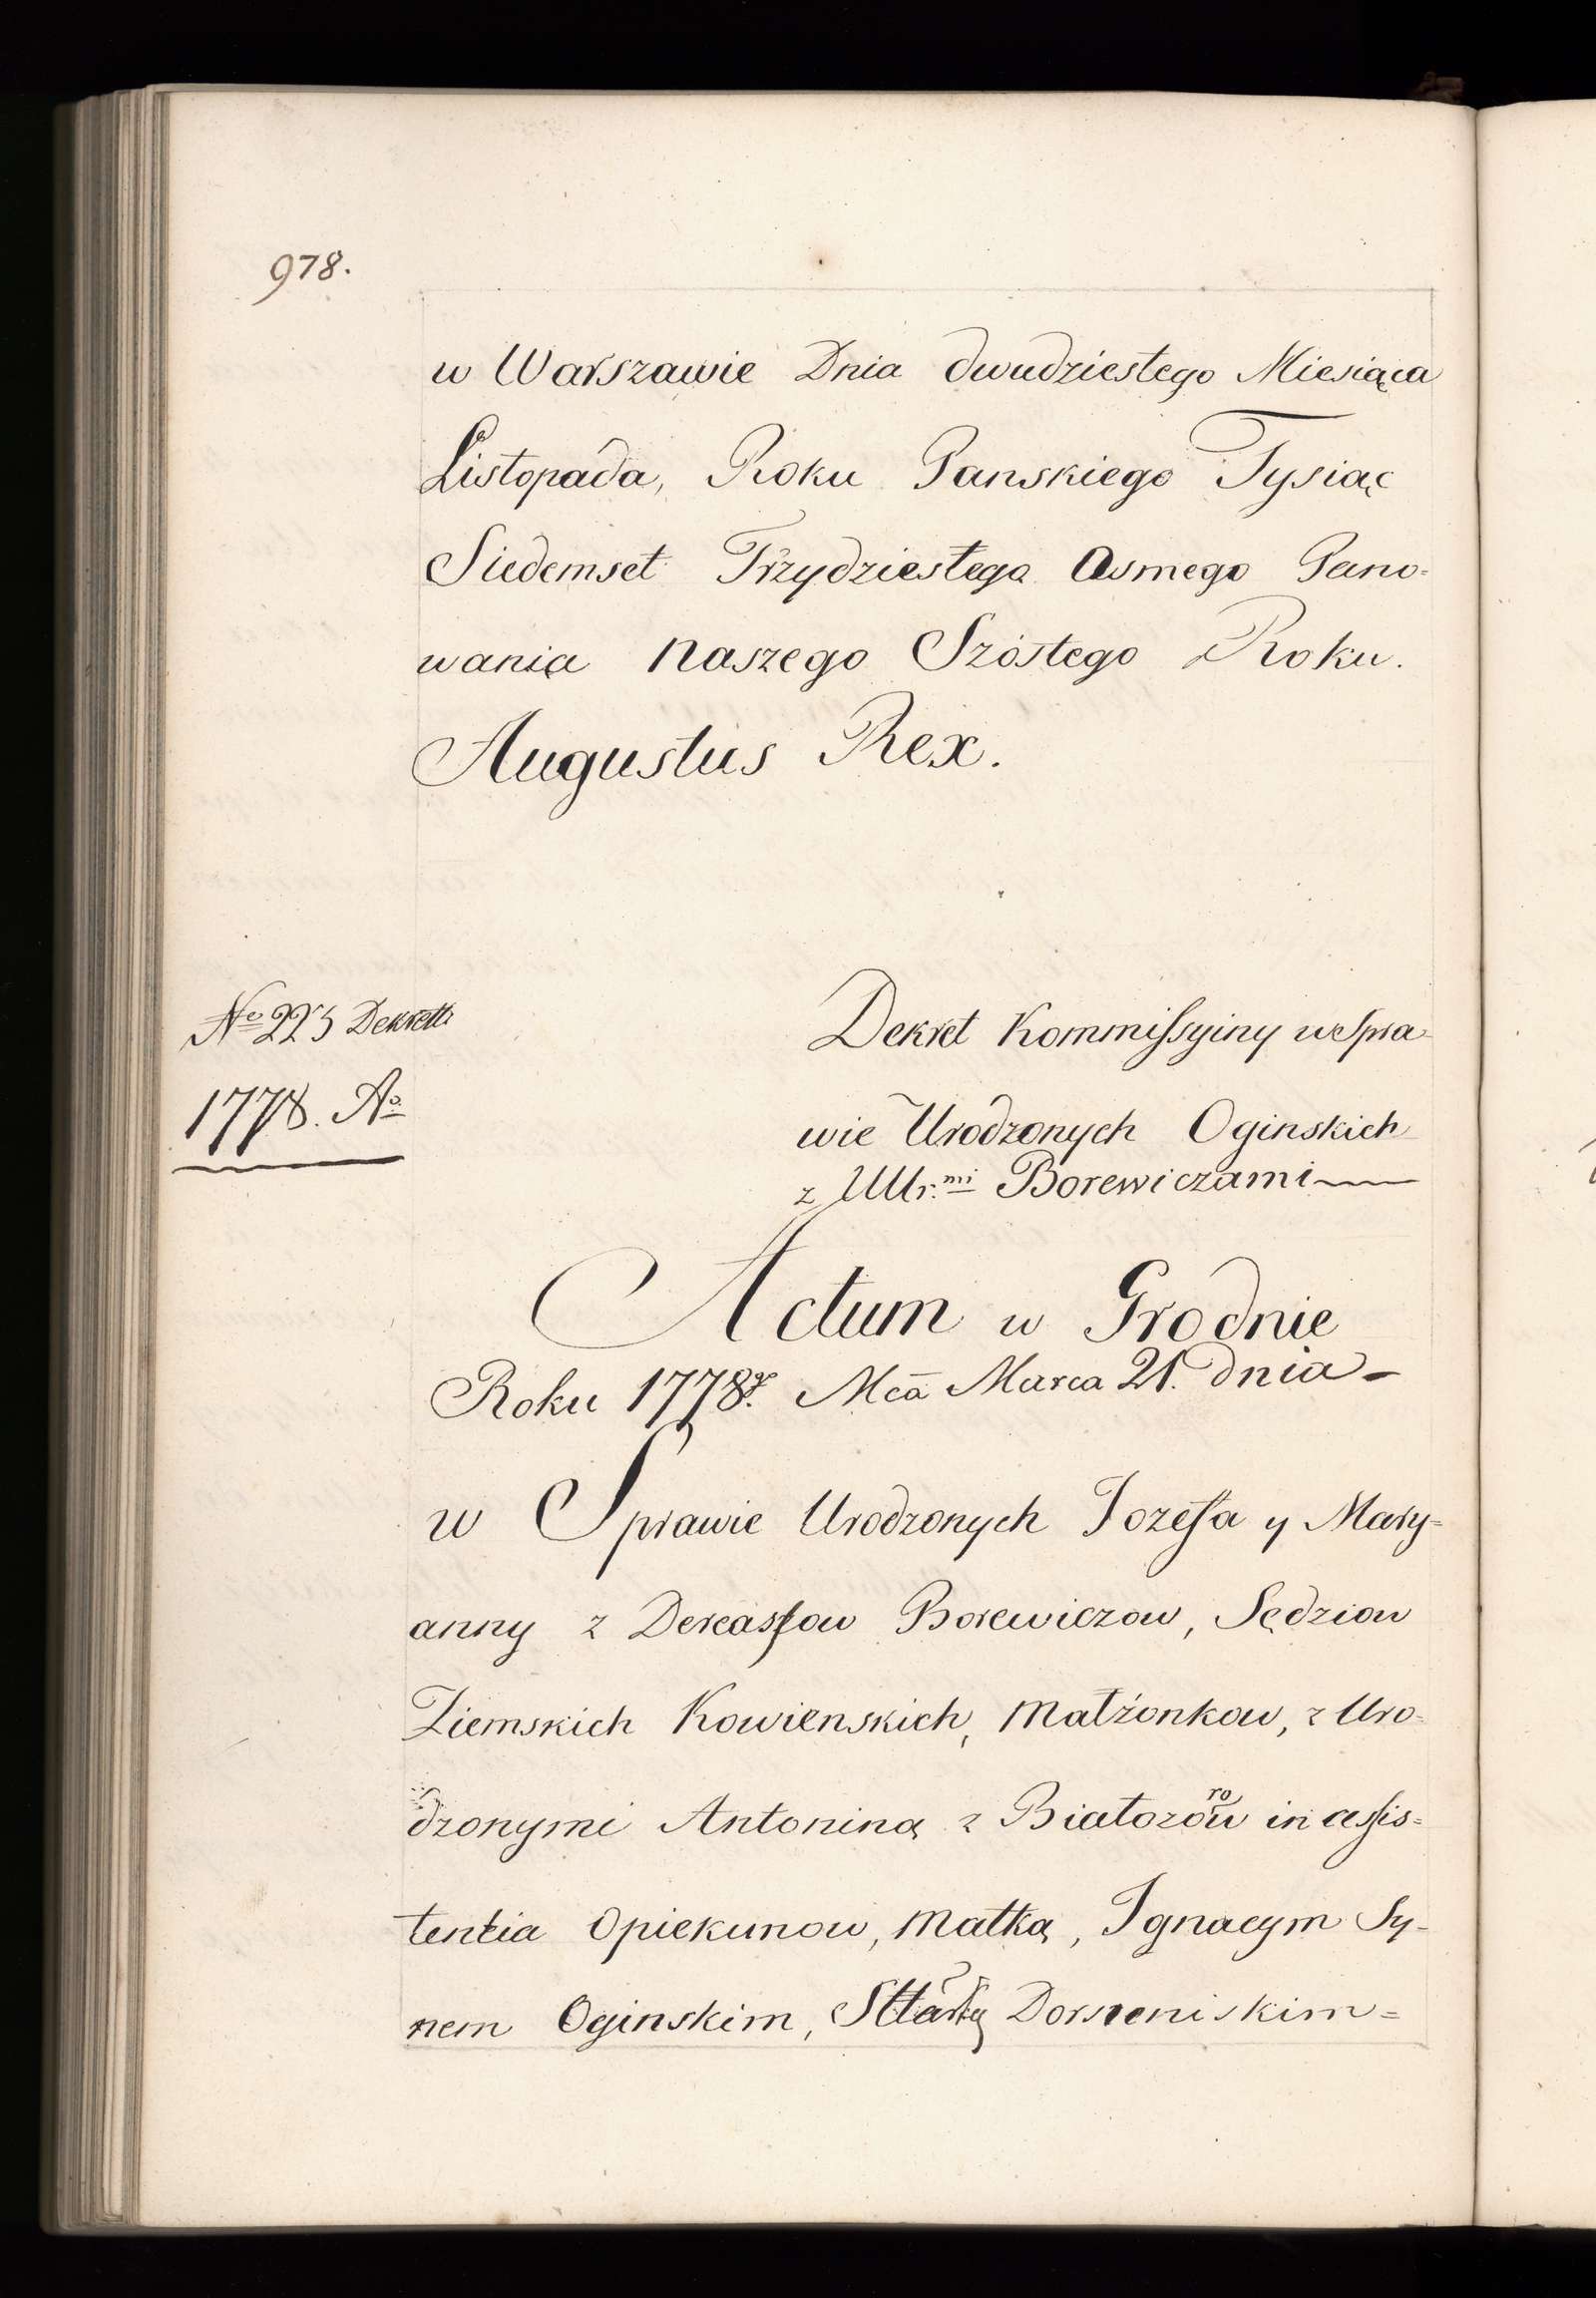 978.
w Warszawie Dnia dwudziestego Miesiąca
Listopada, Roku Panskiego Tysiąc
Siedemset Trzydziestego Osmego Pano=
wania naszego Szóstego Roku.
Augustus Rex.
No 223 Dekretu
1778. Ao
Dekret Kommissyiny w Spra-
wie Urodzonych Oginskich
z UUr.mi Borewiczami
Actum w Grodnie
Roku 1778. Mca Marca 21. dnia -
w Sprawie Urodzonych Jozefa y Mary=
anny z Dereassow Borewiczow, Sędziow
Ziemskich Kowienskich, Małżonkow, z Uro=
dzonymi Antoniną z Białozorow in assis=
tentia Opiekunow, Matką, Ignacym Sy-
nem Oginskim, Dorsuniskim=